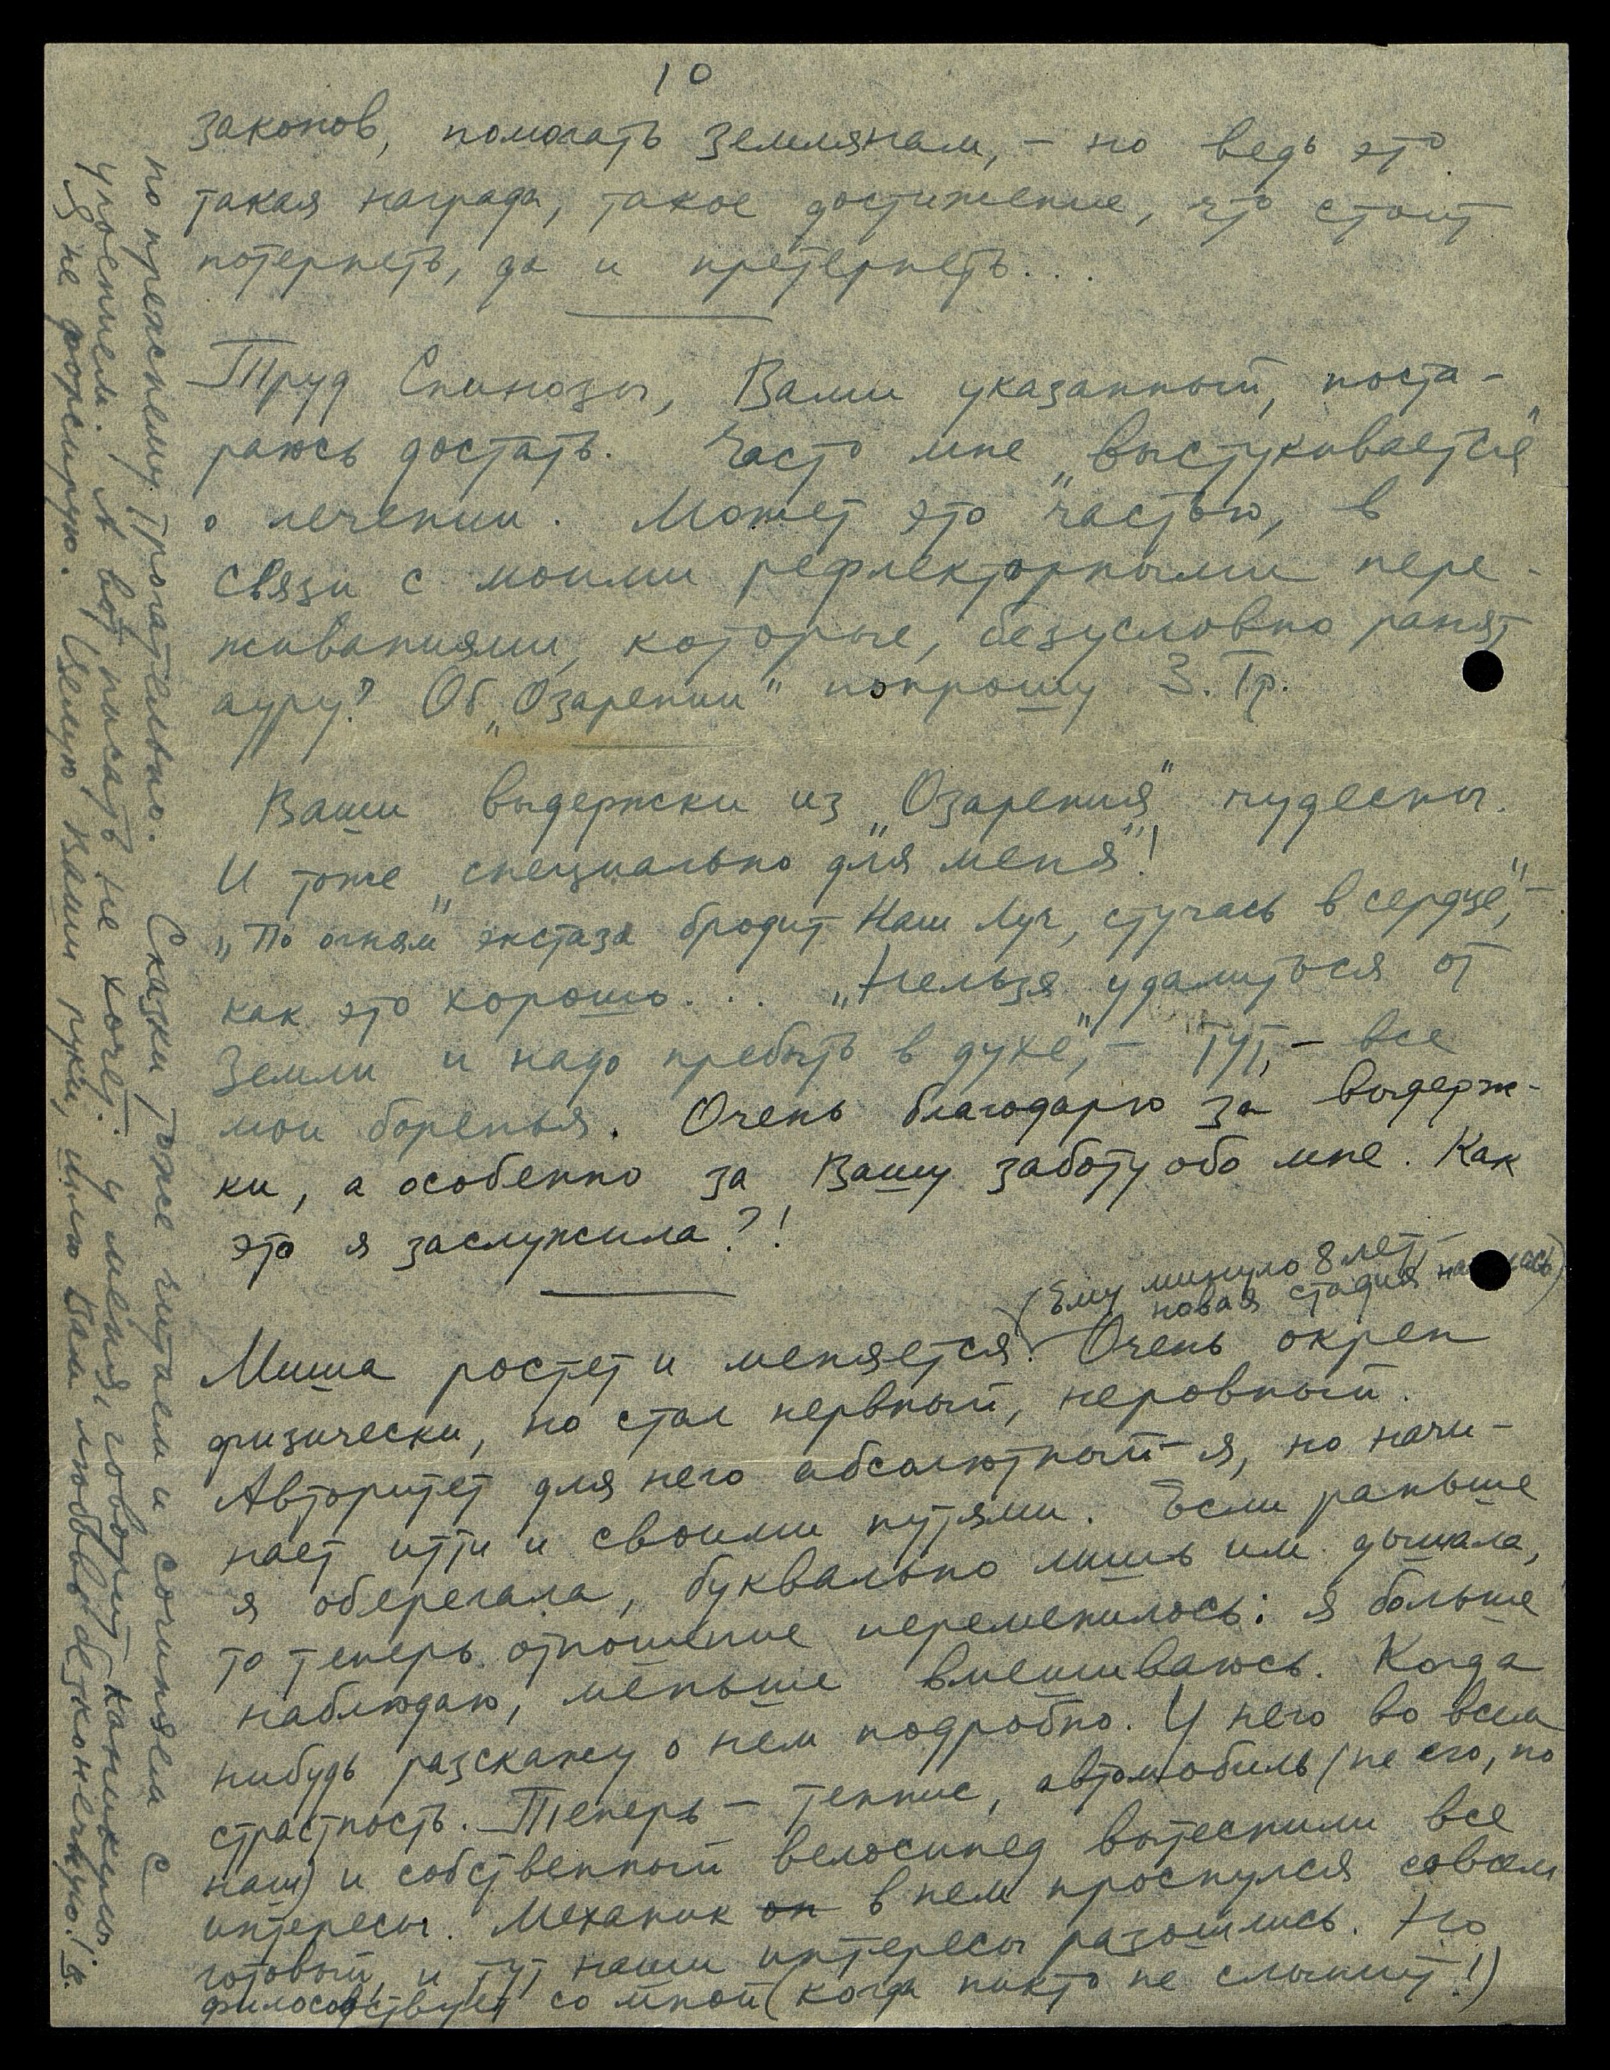 10
законов, помогать землянам, – но ведь это
такая награда, такое достижение, что стоит
потерпеть, да и претерпеть...
Труд Спинозы, Вами указанный, поста-
раюсь достать. Часто мне „выстукивается"
о лечении. Может это частью, в
связи с моими рефлекторными пере-
живаниями, которые, безусловно ранят
ауру? Об „Озарении" попрошу З. Гр.
Ваши выдержки из „Озарения" чудесны.
И тоже „специально для меня"!
„По огням экстаза бродит Наш Луч, стучась в сердце", –
как это хорошо... „Нельзя удалиться от
Земли и надо пребыть в духе", – тут, – все
мои боренья. Очень благодарю за выдерж-
ки, а особенно за Вашу заботу обо мне. Как
это я заслужила?!
(Ему минуло 8 лет –
новая стадия началась)
Миша ростет и меняется. Очень окреп
физически, но стал нервный, неровный.
Авторитет для него абсолютный – я, но начи-
нает итти и своими путями. Если раньше
я оберегала, буквально лишь им дышала,
то теперь отношение переменилось: я больше
наблюдаю, меньше вмешиваюсь. Когда
нибудь разскажу о нем подробно. У него во всем
страстность. Теперь – теннис, автомобиль (не его, но
наш) и собственный велосипед вытеснили все
интересы. Механик он в нем проснулся совсем
готовый, и тут наши интересы разошлись. Но
философствует со мной (когда никто не слышит!)
по прежнему трогательно. Сказки тоже читаем и сочиняем с
упоением. А вот писать не хочет. У меня, говорит, каникулы.
Я не форсирую. Целую Ваши руки, шлю Вам любовь безконечную! Я.